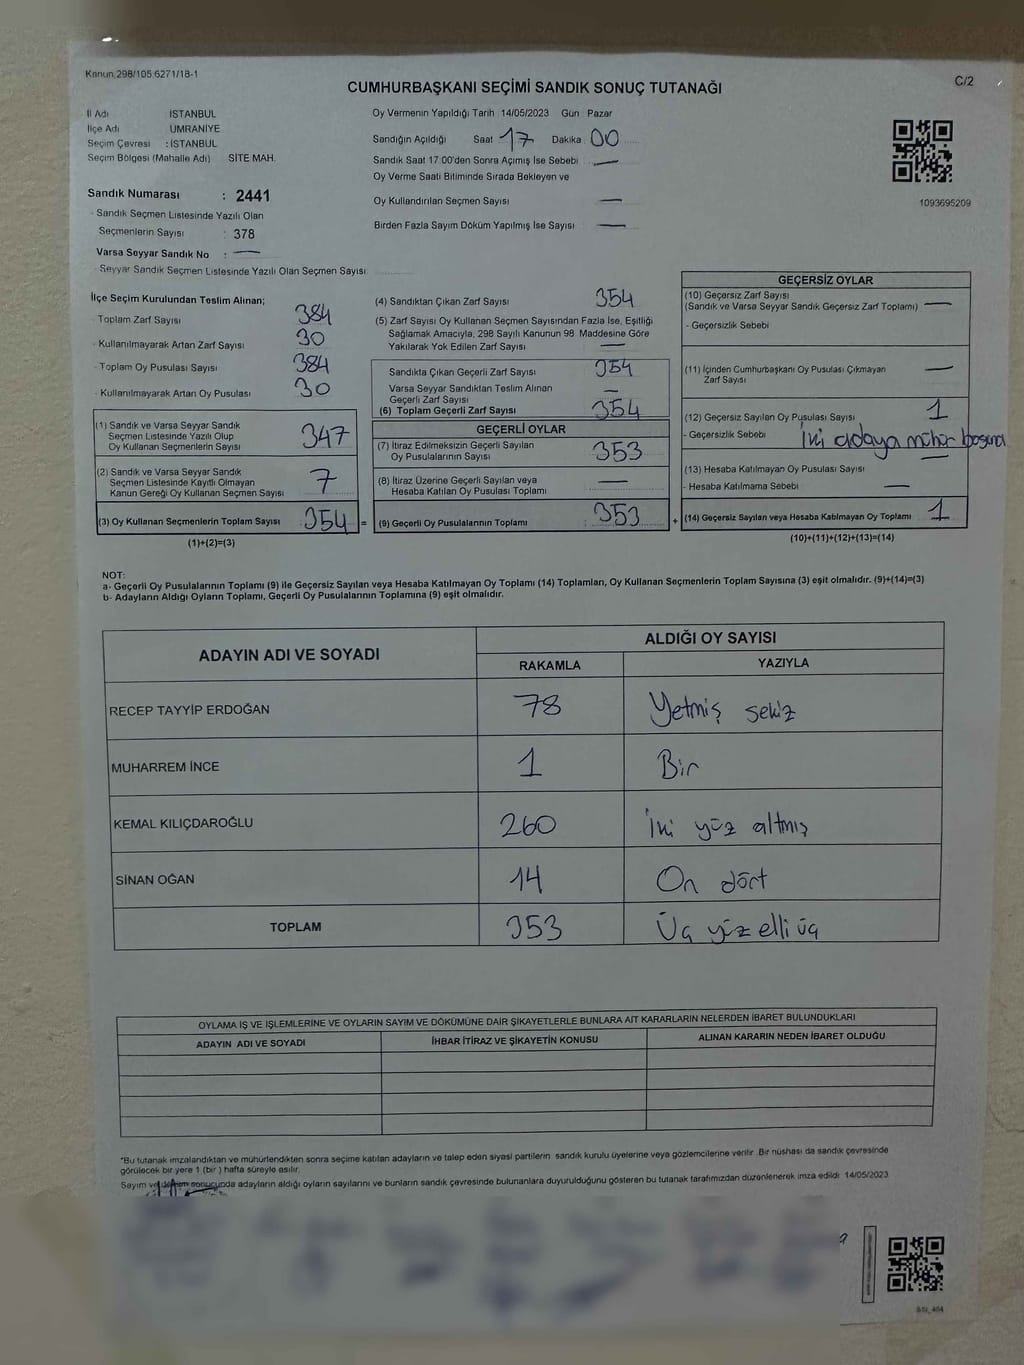 Kanun 298/105 6271/18-1
C/2
CUMHURBAŞKANI SEÇİMİ SANDIK SONUÇ TUTANAĞI
İl Adı İSTANBUL
İlçe Adı ÜMRANİYE
Seçim Çevresi : İSTANBUL
Seçim Bölgesi (Mahalle Adı) SİTE MAH.
Sandık Numarası : 2441
- Sandık Seçmen Listesinde Yazılı Olan
Seçmenlerin Sayısı : 378
Varsa Seyyar Sandık No : —
- Seyyar Sandık Seçmen Listesinde Yazılı Olan Seçmen Sayısı
Oy Vermenin Yapıldığı Tarih 14/05/2023 Gün Pazar
Sandığın Açıldığı Saat 17 Dakika 00
Sandık Saat 17:00'den Sonra Açımış İse Sebebi —
Oy Verme Saati Bitiminde Sırada Bekleyen ve
Oy Kullandırılan Seçmen Sayısı —
Birden Fazla Sayım Döküm Yapılmış İse Sayısı —
1093695209
İlçe Seçim Kurulundan Teslim Alınan;
- Toplam Zarf Sayısı 384
- Kullanılmayarak Artan Zarf Sayısı 30
- Toplam Oy Pusulası Sayısı 384
- Kullanılmayarak Artan Oy Pusulası 30
(1) Sandık ve Varsa Seyyar Sandık
Seçmen Listesinde Yazılı Olup
Oy Kullanan Seçmenlerin Sayısı 347
(2) Sandık ve Varsa Seyyar Sandık
Seçmen Listesinde Kayıtlı Olmayan
Kanun Gereği Oy Kullanan Seçmen Sayısı 7
(3) Oy Kullanan Seçmenlerin Toplam Sayısı 354 =
(1)+(2)=(3)
(4) Sandıktan Çıkan Zarf Sayısı 354
(5) Zarf Sayısı Oy Kullanan Seçmen Sayısından Fazla İse, Eşitliği
Sağlamak Amacıyla, 298 Sayılı Kanunun 98. Maddesine Göre
Yakılarak Yok Edilen Zarf Sayısı —
Sandıkta Çıkan Geçerli Zarf Sayısı 354
Varsa Seyyar Sandıktan Teslim Alınan
Geçerli Zarf Sayısı —
(6) Toplam Geçerli Zarf Sayısı 354
GEÇERLİ OYLAR
(7) İtiraz Edilmeksizin Geçerli Sayılan
Oy Pusulalarının Sayısı 353
(8) İtiraz Üzerine Geçerli Sayılan veya
Hesaba Katılan Oy Pusulası Toplamı —
(9) Geçerli Oy Pusulalarının Toplamı 353 +
GEÇERSİZ OYLAR
(10) Geçersiz Zarf Sayısı
(Sandık ve Varsa Seyyar Sandık Geçersiz Zarf Toplamı) —
- Geçersizlik Sebebi
(11) İçinden Cumhurbaşkanı Oy Pusulası Çıkmayan
Zarf Sayısı —
(12) Geçersiz Sayılan Oy Pusulası Sayısı 1
- Geçersizlik Sebebi İki adaya mühür basımı
(13) Hesaba Katılmayan Oy Pusulası Sayısı
- Hesaba Katılmama Sebebi —
(14) Geçersiz Sayılan veya Hesaba Katılmayan Oy Toplamı 1
(10)+(11)+(12)+(13)=(14)
NOT:
a- Geçerli Oy Pusulalarının Toplamı (9) ile Geçersiz Sayılan veya Hesaba Katılmayan Oy Toplamı (14) Toplamları, Oy Kullanan Seçmenlerin Toplam Sayısına (3) eşit olmalıdır. (9)+(14)=(3)
b- Adayların Aldığı Oyların Toplamı, Geçerli Oy Pusulalarının Toplamına (9) eşit olmalıdır.
ADAYIN ADI VE SOYADI
ALDIĞI OY SAYISI
RAKAMLA YAZIYLA
RECEP TAYYİP ERDOĞAN 78 Yetmiş sekiz
MUHARREM İNCE 1 Bir
KEMAL KILIÇDAROĞLU 260 İki yüz altmış
SİNAN OĞAN 14 On dört
TOPLAM 353 Üç yüz elli üç
OYLAMA İŞ VE İŞLEMLERİNE VE OYLARIN SAYIM VE DÖKÜMÜNE DAİR ŞİKAYETLERLE BUNLARA AİT KARARLARIN NELERDEN İBARET BULUNDUKLARI
ADAYIN ADI VE SOYADI İHBAR İTİRAZ VE ŞİKAYETİN KONUSU ALINAN KARARIN NEDEN İBARET OLDUĞU
*Bu tutanak imzalandıktan ve mühürlendikten sonra seçime katılan adayların ve talep eden siyasi partilerin sandık kurulu üyelerine veya gözlemcilerine verilir. Bir nüshası da sandık çevresinde
görülecek bir yere 1 (bir) hafta süreyle asılır.
Sayım ve döküm sonucunda adayların aldığı oyların sayılarını ve bunların sandık çevresinde bulunanlara duyurulduğunu gösteren bu tutanak tarafımızdan düzenlenerek imza edildi 14/05/2023